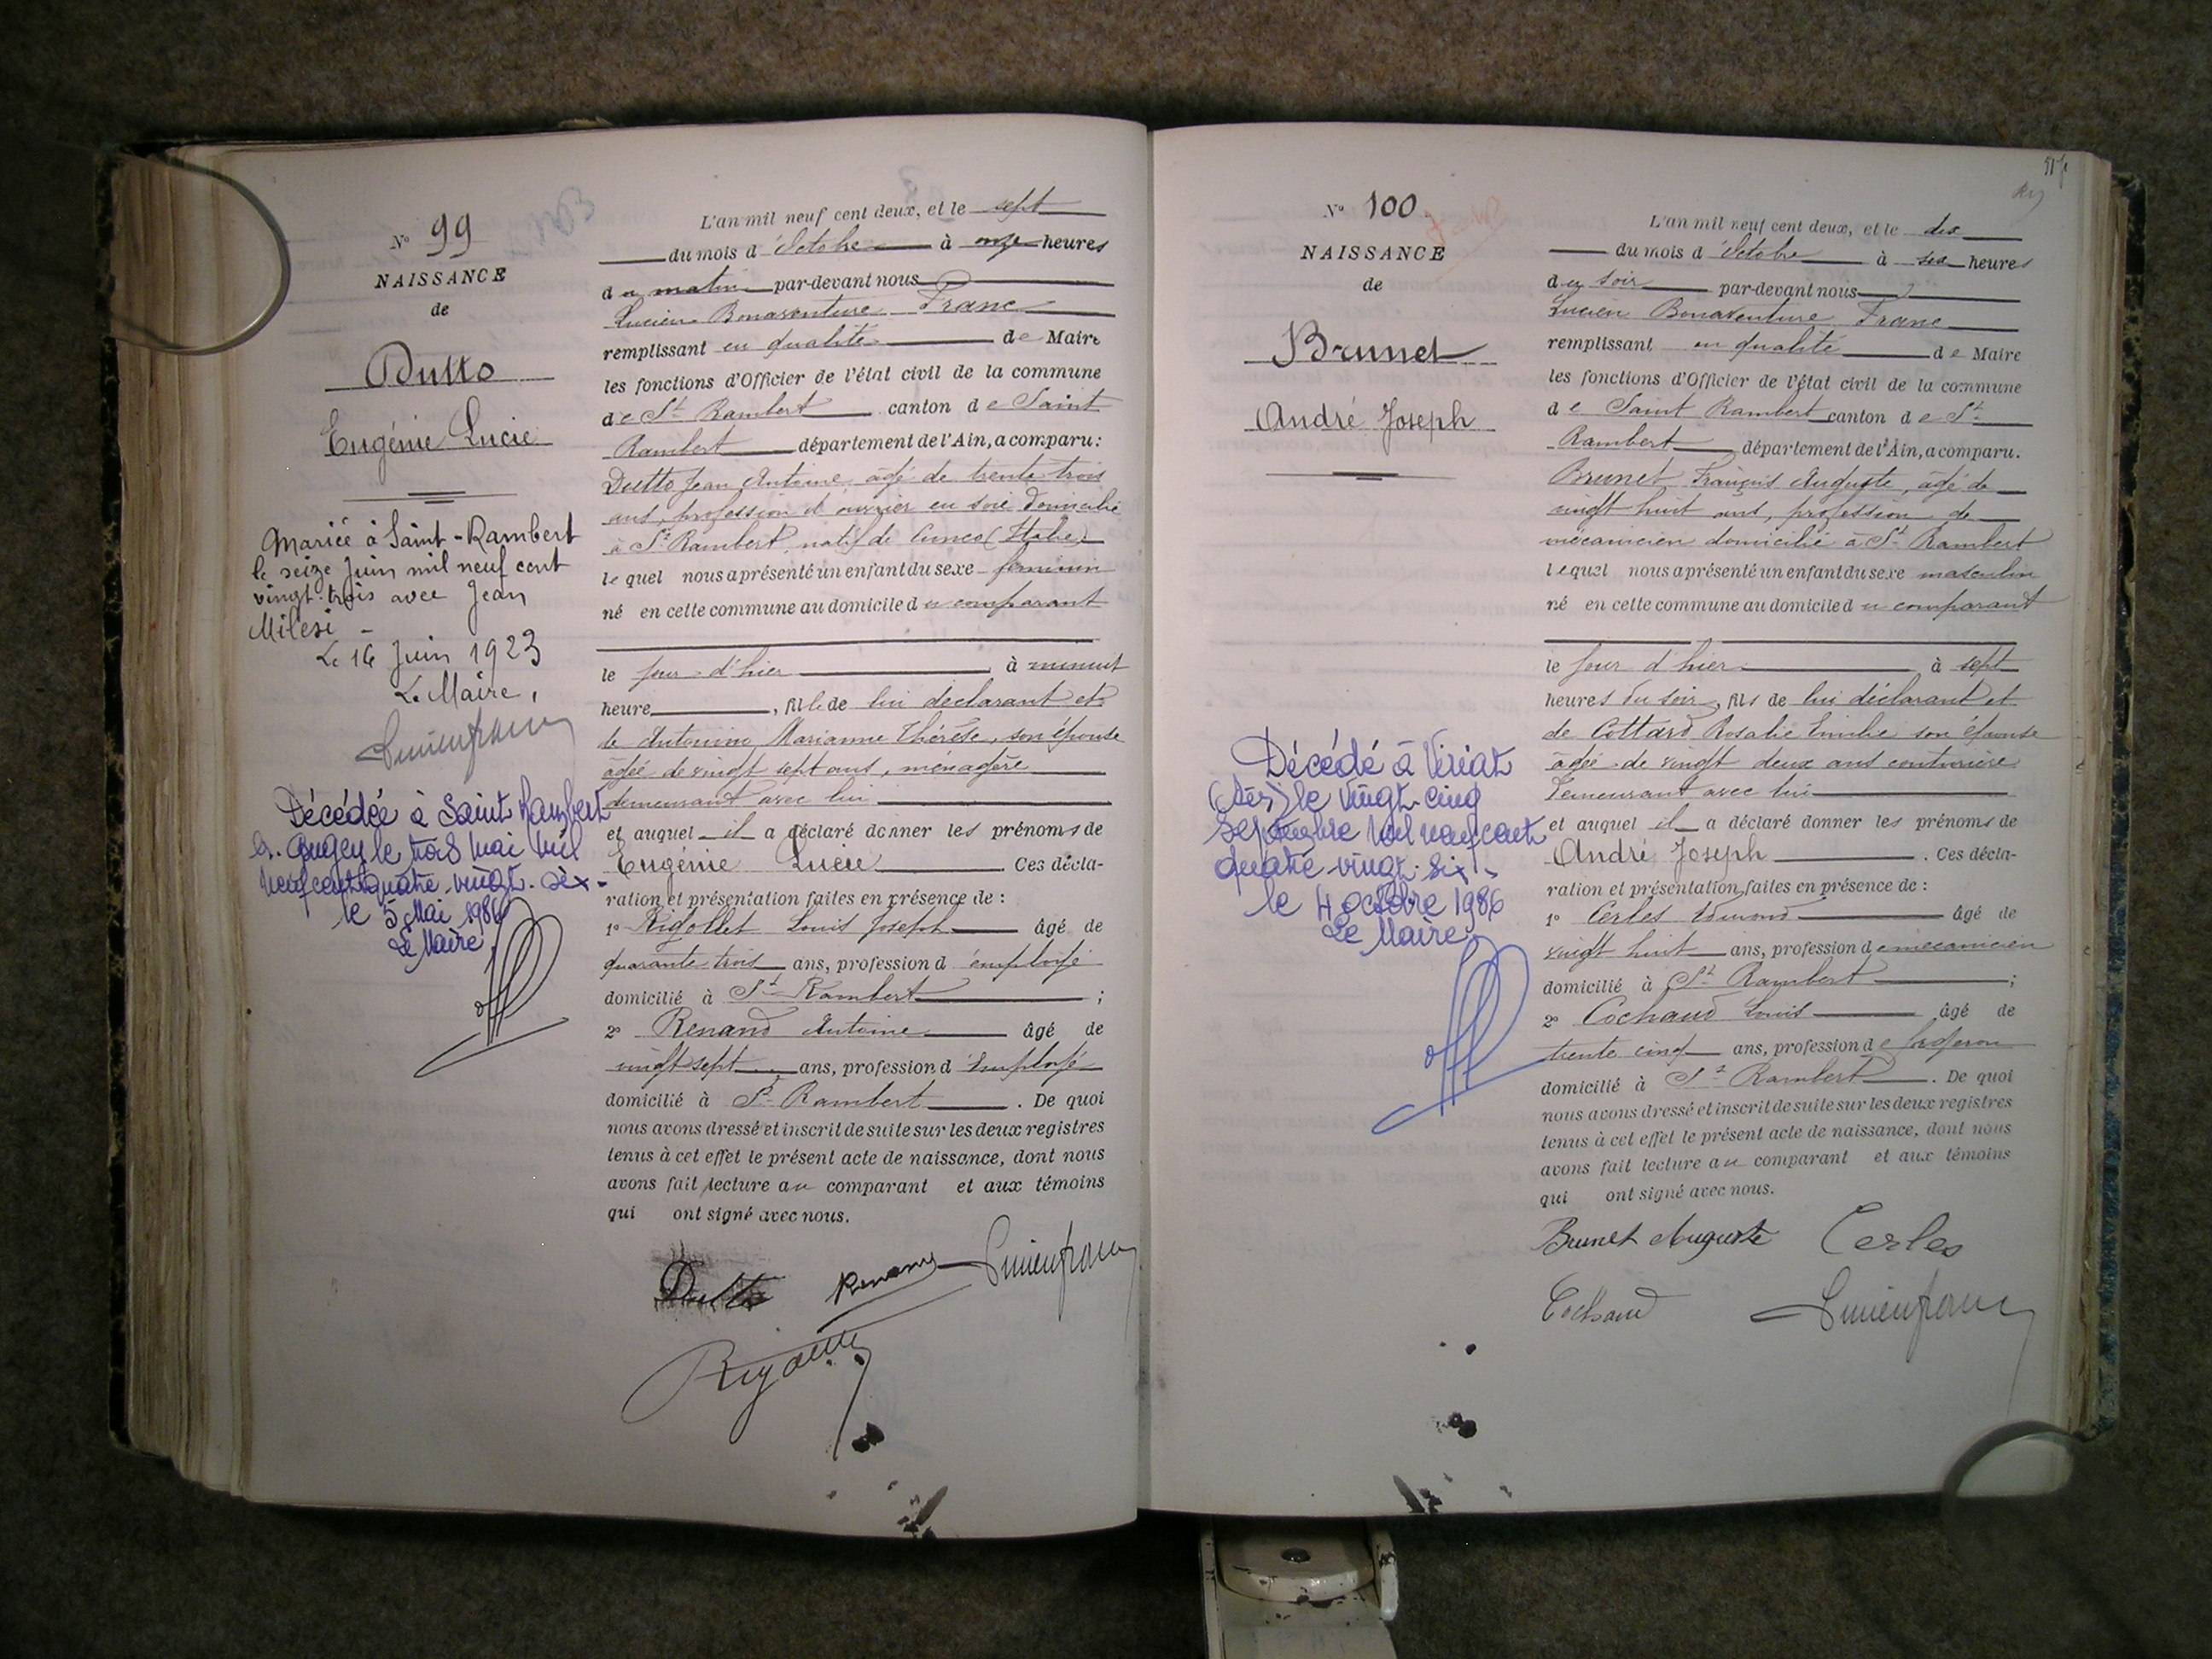 N° 99
NAISSANCE
de
Dutto
Eugénie Lucie
Mariée à Saint-Rambert
le seize Juin mil neuf cent
vingt-trois avec Jean
Milesi -
Le 16 Juin 1923
Le Maire,
Décédée à Saint Rambert
en Bugey le trois Mai mil
neuf cent quatre-vingt-six-
le 5 Mai 1986
Le Maire
L'an mil neuf cent deux, et le sept
du mois d'Octobre à onze heures
du matin par-devant nous
Lucien Bonaventure Franc
remplissant en qualité de Maire
les fonctions d'Officier de l'état civil de la commune
de St Rambert canton de Saint
Rambert département de l'Ain, a comparu:
Dutto Jean Antoine âgé de trente trois
ans, profession d'ouvrier en soie domicilié
à St Rambert, natif de Cuneo (Italie)
lequel nous a présenté un enfant du sexe féminin
né en cette commune au domicile du comparant
le jour d'hier à minuit
heure, fille de lui déclarant et
de Antonino Marianne Thérèse, son épouse
âgée de vingt sept ans, ménagère
demeurant avec lui
et auquel il a déclaré donner les prénoms de
Eugénie Lucie. Ces décla-
ration et présentation faites en présence de:
1° Rigollet Louis Joseph âgé de
quarante trois ans, profession d'employé
domicilié à St Rambert;
2° Renand Antoine âgé de
vingt sept ans, profession d'employé
domicilié à St Rambert. De quoi
nous avons dressé et inscrit de suite sur les deux registres
tenus à cet effet le présent acte de naissance, dont nous
avons fait lecture au comparant et aux témoins
qui ont signé avec nous.
Dutto Renand Lucien franc
N° 100
NAISSANCE
de
Brunet
André Joseph
Décédé à Viriat
(Ain) le vingt-cinq
septembre mil neuf cent
quatre-vingt-six-
le 4 octobre 1986
Le Maire
L'an mil neuf cent deux, et le dix
du mois d'Octobre à six heures
du soir par-devant nous
Lucien Bonaventure Franc
remplissant en qualité de Maire
les fonctions d'Officier de l'état civil de la commune
de Saint Rambert canton de St
Rambert département de l'Ain, a comparu.
Brunet François Auguste, âgé de
vingt huit ans, profession de
mécanicien domicilié à St Rambert
lequel nous a présenté un enfant du sexe masculin
né en cette commune au domicile du comparant
le jour d'hier à sept
heures du soir, fils de lui déclarant et
de Cottard Rosalie Emilie son épouse
âgée de vingt deux ans couturière
demeurant avec lui
et auquel il a déclaré donner les prénoms de
André Joseph. Ces décla-
ration et présentation faites en présence de:
1° Cerles Edmond âgé de
vingt huit ans, profession de mécanicien
domicilié à St Rambert;
2° Cochaud Louis âgé de
trente cinq ans, profession de forgeron
domicilié à St Rambert. De quoi
nous avons dressé et inscrit de suite sur les deux registres
tenus à cet effet le présent acte de naissance, dont nous
avons fait lecture au comparant et aux témoins
qui ont signé avec nous.
Brunet Auguste Cerles
Cochaud Lucien franc